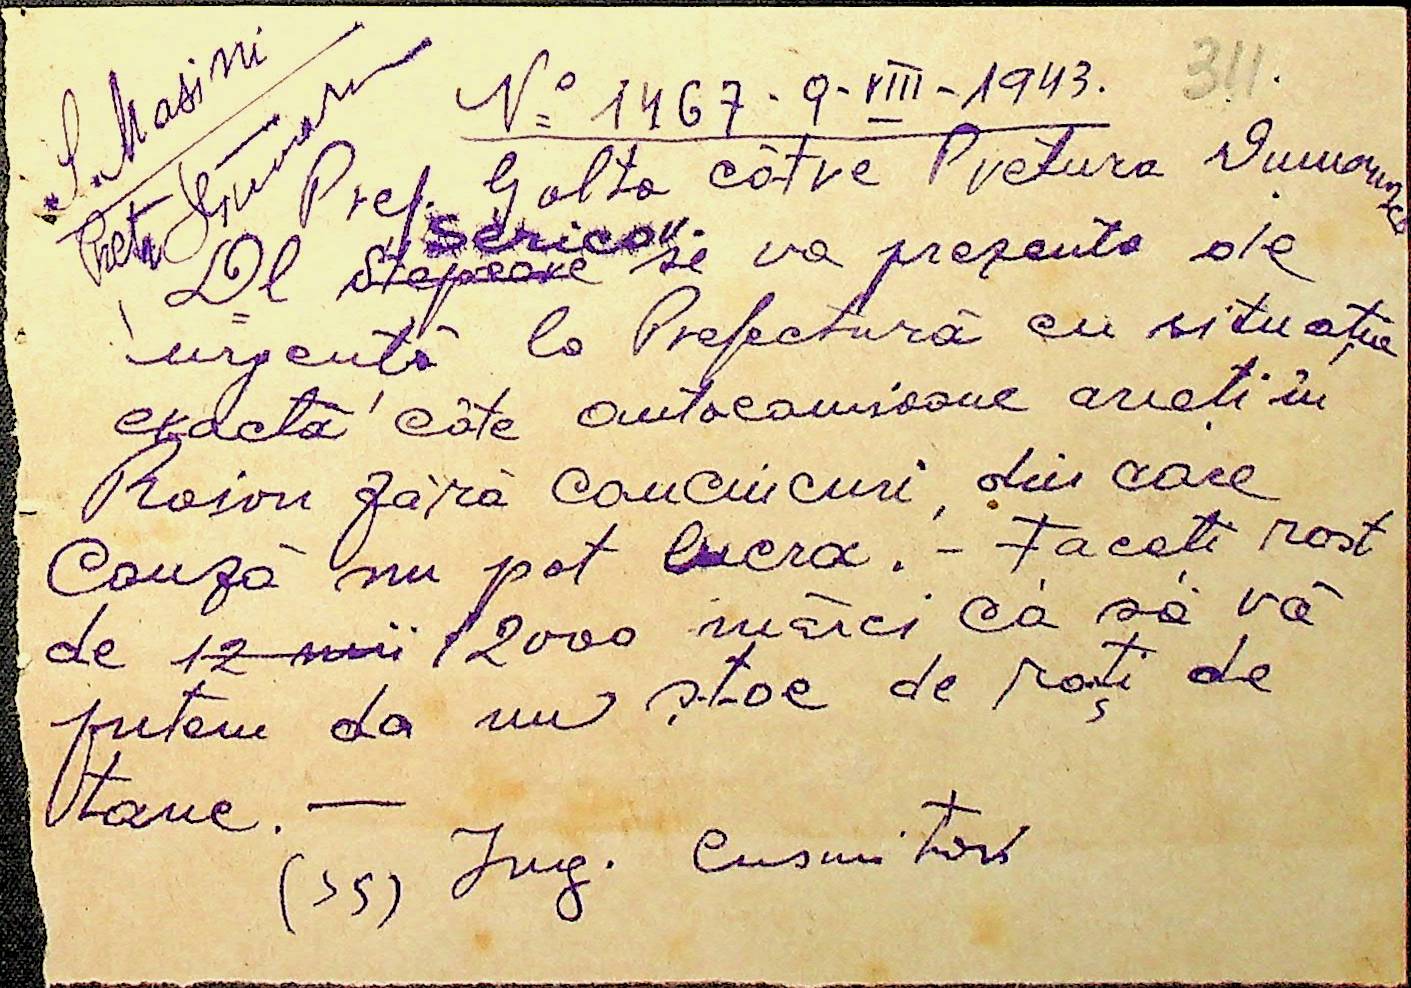 S. Masini
Pretr
No 1467 - 9 - VIII - 1943.
311.
Pref. Golta către Pretura Dumanca
Sericov.
Dl se va prezenta de
urgentă la Prefectură cu situația
exactă câte autocamioane aveți în
Raion fără cauciucuri, din care
Cauză nu pot lucra. - Faceți rost
de 12 mii 12000 mărci ca să vă
putem da un stoc de roți de
tane. —
(ss) Ing. Cusmitov